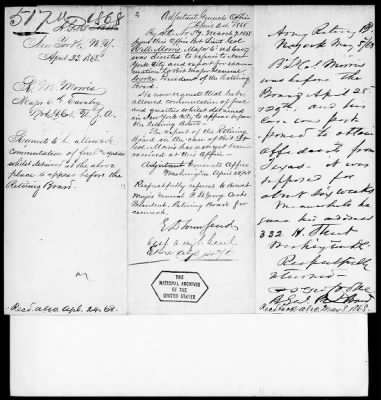 517 M 1868
New York, N.Y.
April 22 1868.
Morris
Major 6th Cavalry
Bvt. Col. U.S.A.
Request to be allowed
commutation of fuel & quarters
whilst detained at the above
place to appear before the
Retiring Board.
Recd. A.G.O. Apl. 24. 68.
Adjutant General's Office
April 24th 1868.
By S.O. No.
from this Office Bvt. Col.
Morris, Major 6 US Cavy
was directed to repair to New
York City and report for exam-
ination to Bvt. Major General
Cooke, President of the Retiring
Board.
He now requests that he be
allowed commutation of fuel
and quarters whilst detained
in New York City to appear before
the Retiring Board.
The report of the Retiring
Board in the case of Bvt. Col.
Morris has not yet been
received at this office.
Adjutant General's Office
Washington April 28/68
Respectfully referred to Brevet
Major General P. St. Geo. Cooke
President, Retiring Board for
remark.
E D Townsend
Asst Adjt Genl
THE
NATIONAL ARCHIVES
OF THE
UNITED STATES
Army Retiring Bd
New York May 5/68
Bt. Col. Morris
was before the
Board April 28
& 29th. and his
case was post
poned to obtain
affidavits from
Texas. It was
supposed for
about six weeks
Meanwhile he
gave his address
332 H. Street
Washington
Respectfully
returned
Recd back A.G.O. May 8, 1868.